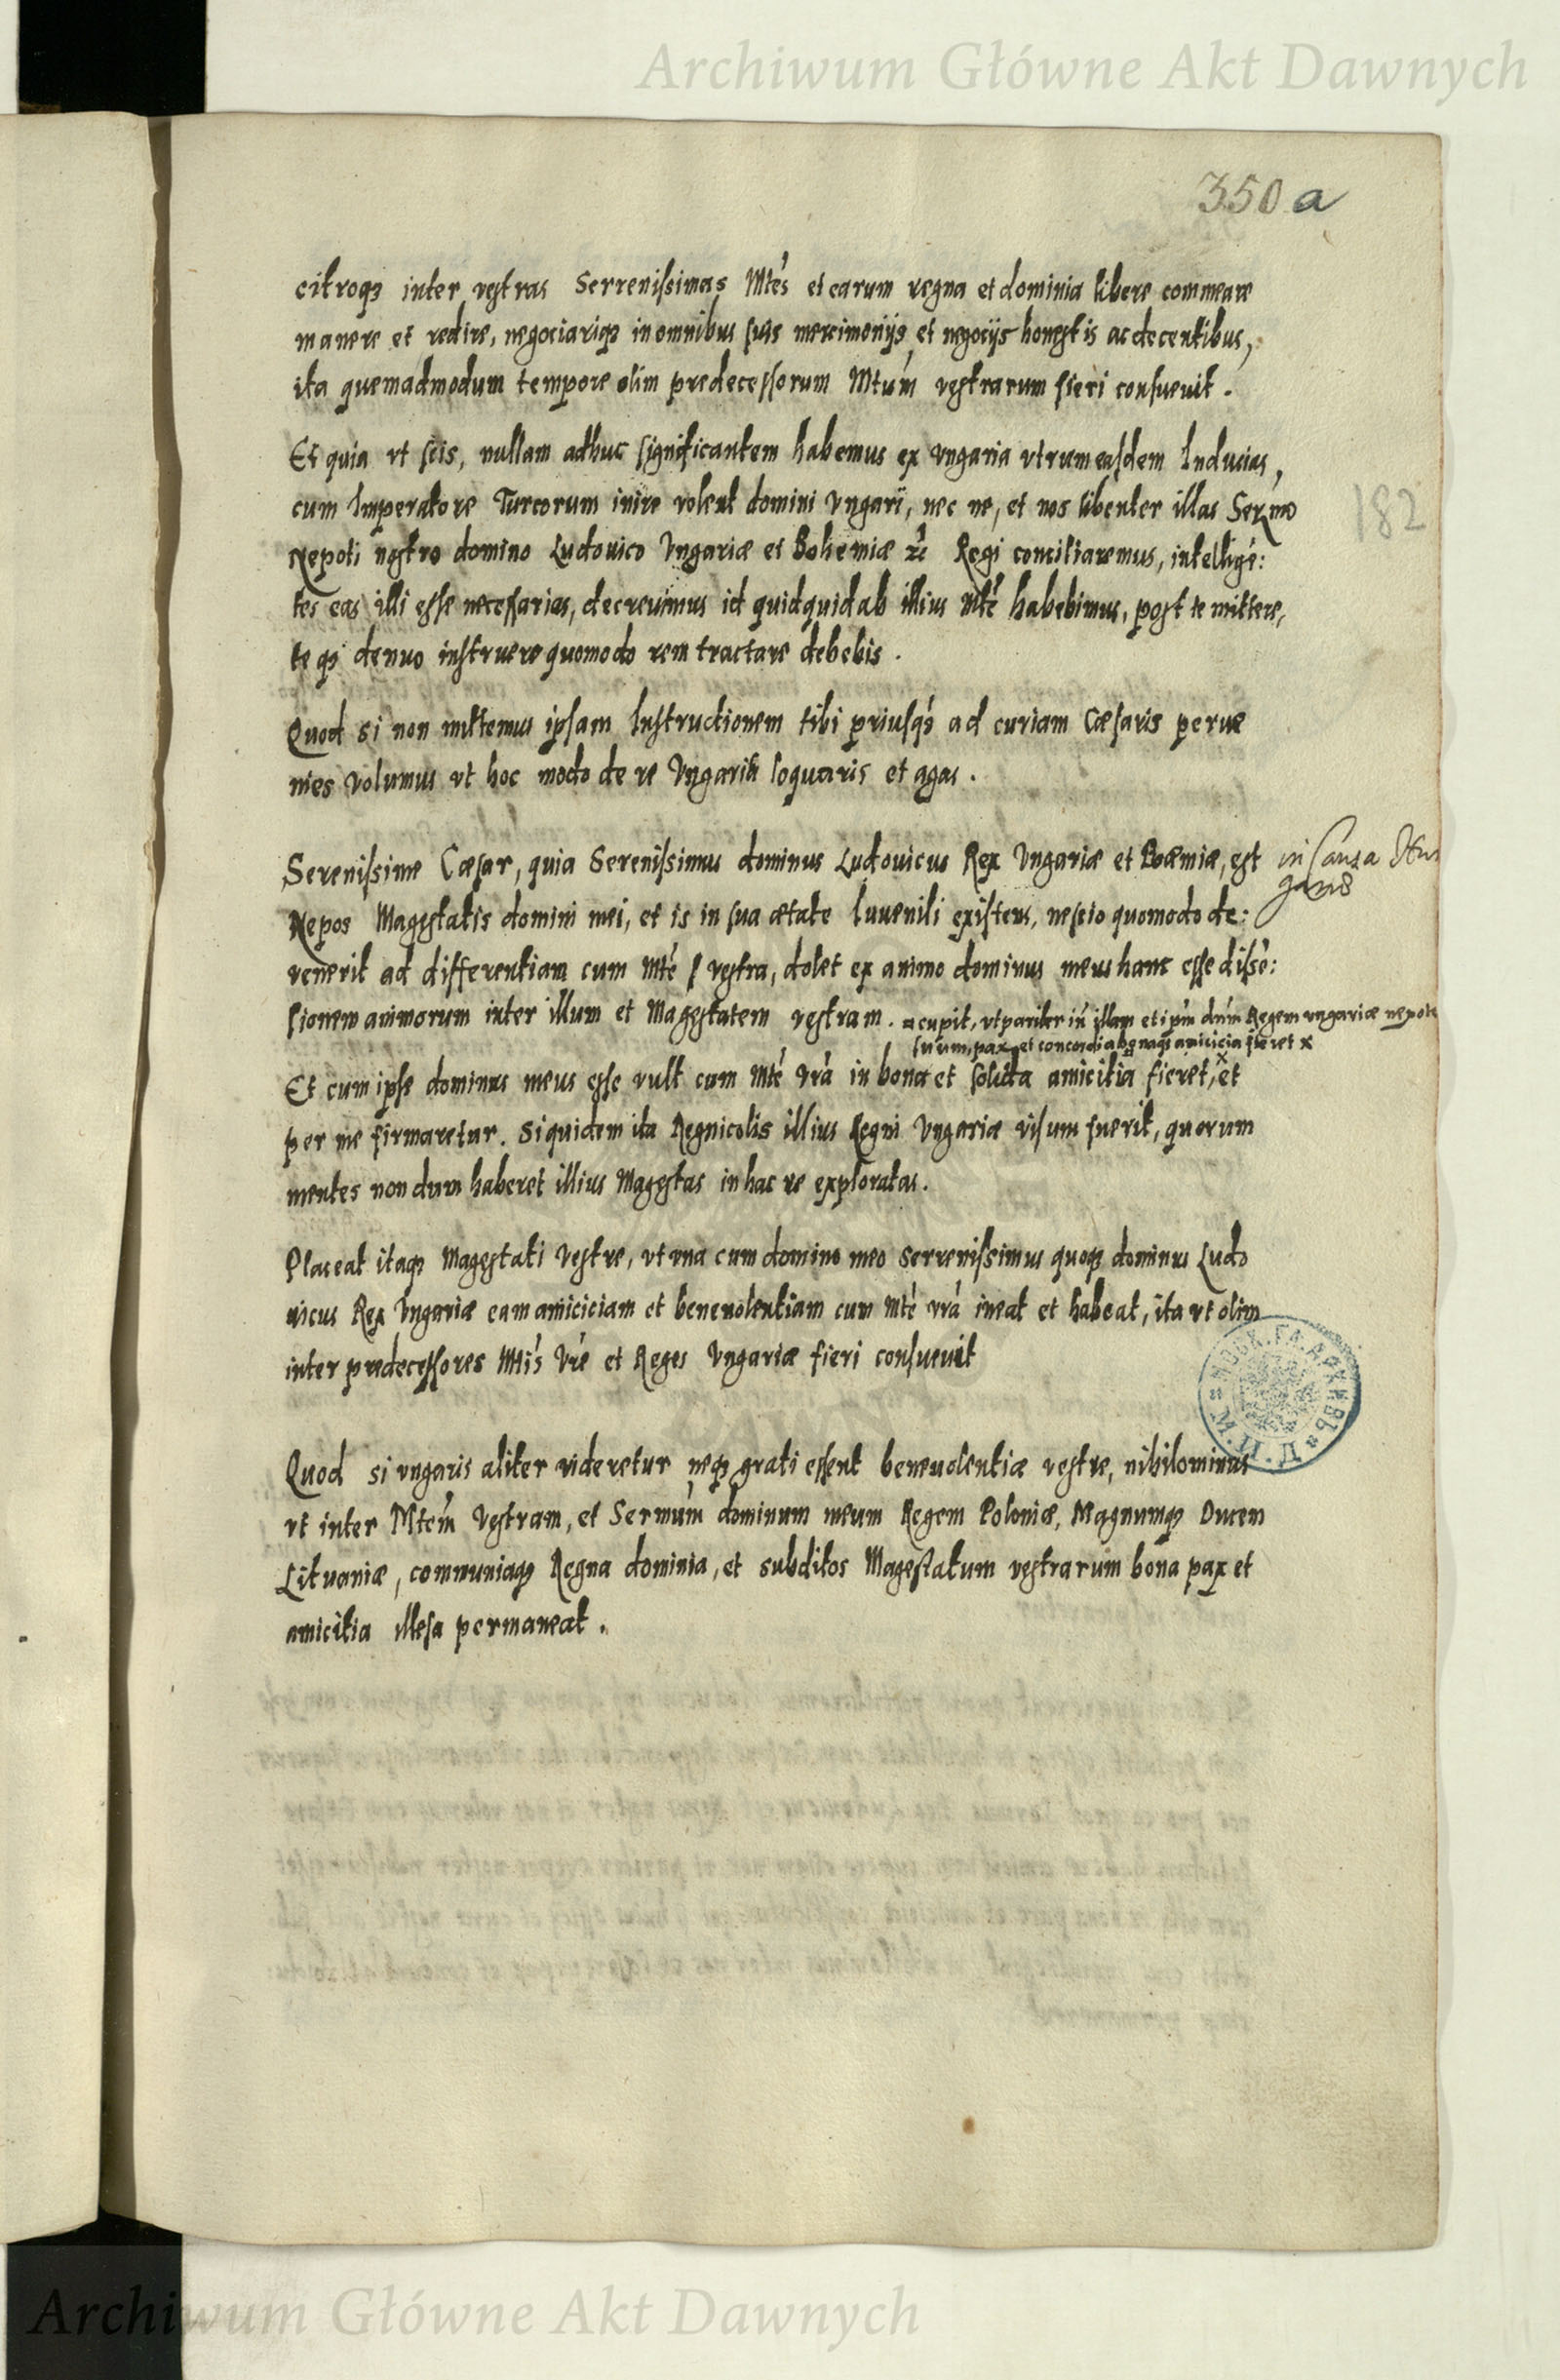 Archiwum Główne Akt Dawnych
350 a
citroq3 inter vestras Serrenissimas Mtes et earum regna et dominia libere commeare
manere et redire, negociariq3 in omnibus suis mercimonijs et negocijs honestis ac decentibus,
ita quemadmodum tempore olim predecessorum Mtum vestrarum fieri consuevit.
Et quia vt scis, nullam adhuc significantem habemus ex vngaria vtrum easdem Inducias,
182
cum Imperatore Turcorum inire volent domini vngari, nec ne, et nos libenter illas Sermo
Nepoti nostro domino Ludovico Vngariæ et Bohemiæ rc̃ Regi conciliaremus, intellige:
tes eas illi esse necessarias, decrevimus id quidquid ab illius Mte habebimus, post te mittere,
te q3 denuo instruere quomodo rem tractare debebis.
Quod si non mittemus ipsam Instructionem tibi priusq3 ad curiam Cæsaris perue
nies volumus vt hoc modo de re Vngarica loquaris et agas.
Serenissime Cæsar, quia Serenissimus dominus Ludouicus Rex Vngariæ et Boæmiæ, est
in causa Hun
garis
Nepos Magestatis domini mei, et is in sua ætate Iuuenili existens, nescio quomodo de:
venerit ad differentiam cum Mte vestra, dolet ex animo dominus meus hanc esse disse:
sionem animorum inter illum et Magestatem vestram. cupit, vt pariter in illam et ipm dnm Regem vngariæ nepote
suum, pax et concordia bonaq3 amicicia fieret x
Et cum ipse dominus meus esse vult cum Mte vra in bona et solida amicitia fieret, et
per me firmaretur. Siquidem ita Regnicolis illius Regni Vngariæ visum fuerit, quorum
mentes nondum haberet illius Magestas in hac re exploratas.
Placeat itaq3 Magestati Vestre, vt vna cum domino meo Serrenissimus quoq3 dominus Ludo
uicus Rex Vngariæ eam amiciciam et beneuolentiam cum Mte vra ineat et habeat, ita vt olim
inter predecessores Mtis Vre et Reges Vngariæ fieri consuevit
Quod si vngaris aliter videretur neq3 grati essent beneuolentiæ vestre, nihilominus
vt inter Mtem Vestram, et Sermum dominum meum Regem Poloniæ, Magnumq3 Ducem
Lituaniæ, communiaq3 Regna dominia, et subditos Magestatum vestrarum bona pax et
amicitia illesa permaneat.
Archiwum Główne Akt Dawnych